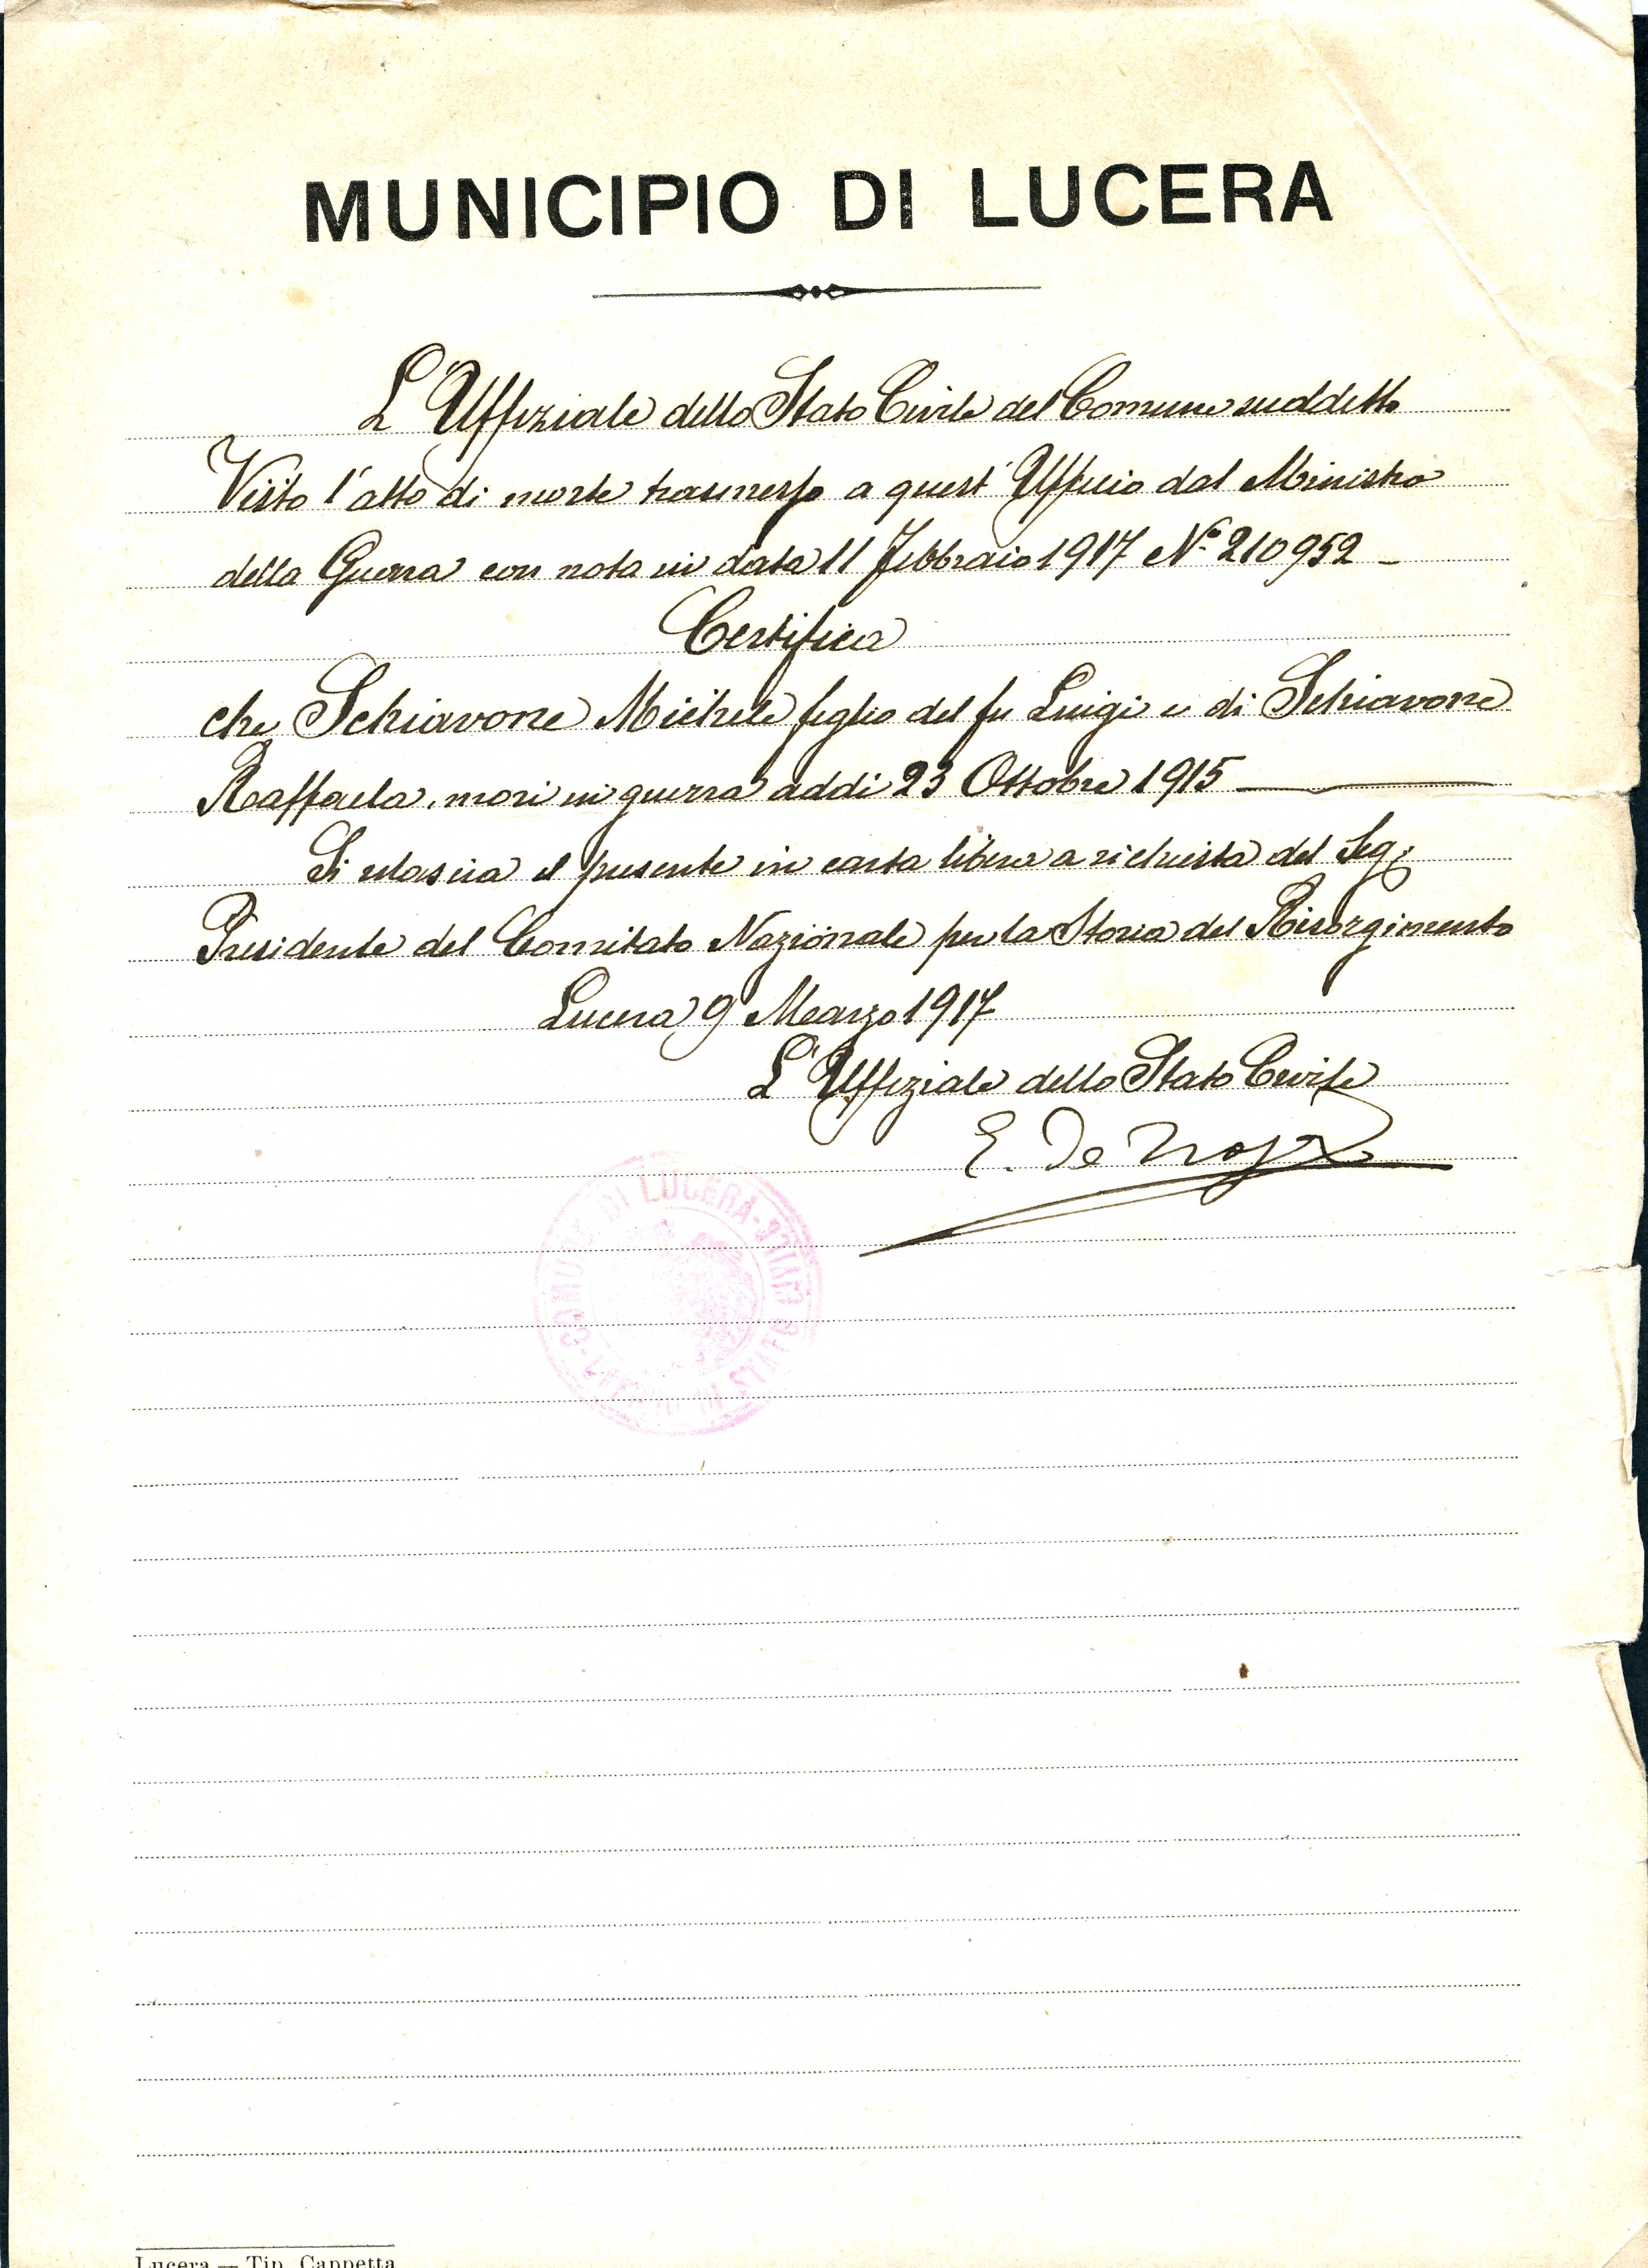 MUNICIPIO DI LUCERA
L'Uffiziale dello Stato Civile del Comune suddetto
Visto l'atto di morte trasmesso a quest'Ufficio dal Ministro
della Guerra con nota in data 11 Febbraio 1917 N° 210952 -
Certifica
che Schiavone Michele figlio del fu Luigi e di Schiavone
Raffaela, morì in guerra addì 23 Ottobre 1915
Si rilascia il presente in carta libera a richiesta del Seg:
Presidente del Comitato Nazionale per la Storia del Risorgimento
Lucera 9 Marzo 1917
L'Uffiziale dello Stato Civile
E. De
COMUNE DI LUCERA - UFFIZIO DI STATO CIVILE
Lucera — Tip. Cappetta